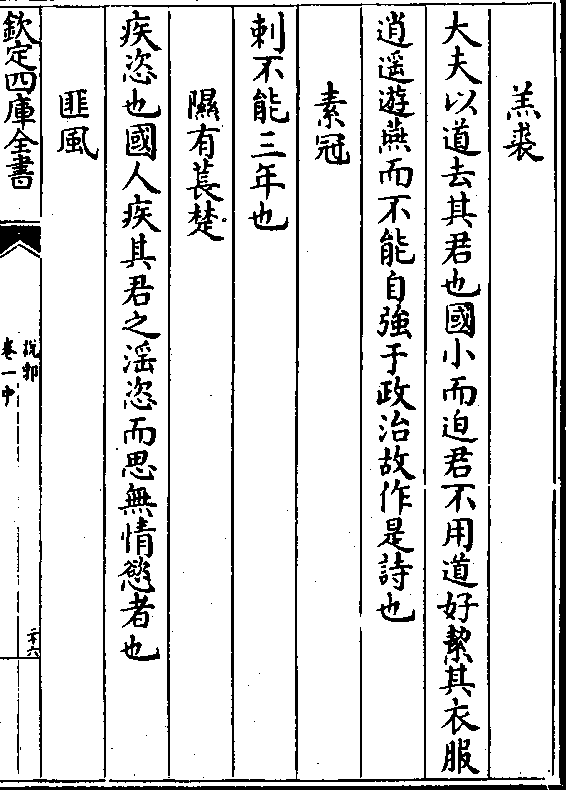 羔裘
大夫以道去其君也國小而迫君不用道好絜其衣服
逍遥遊燕而不能自強于政治故作是詩也
素冠
刺不能三年也
隰有萇楚
疾恣也國人疾其君之淫恣而思無情慾者也
匪風
欽定四庫全書
說郛
卷一中
二十六